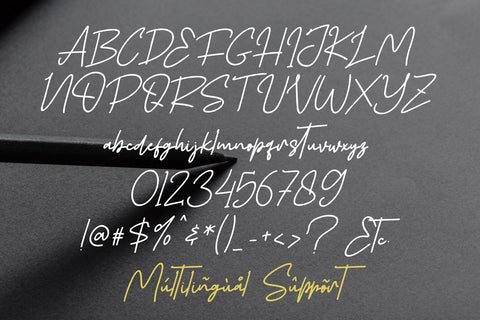 ABCDEFGHIJKLM
NOPQRSTUVWXYZ
abcdefghijklmnopqrstuvwxyz
0123456789
!@#$%^&*()_-+<>? Etc.
Múltilíñgùål Sûppõrt